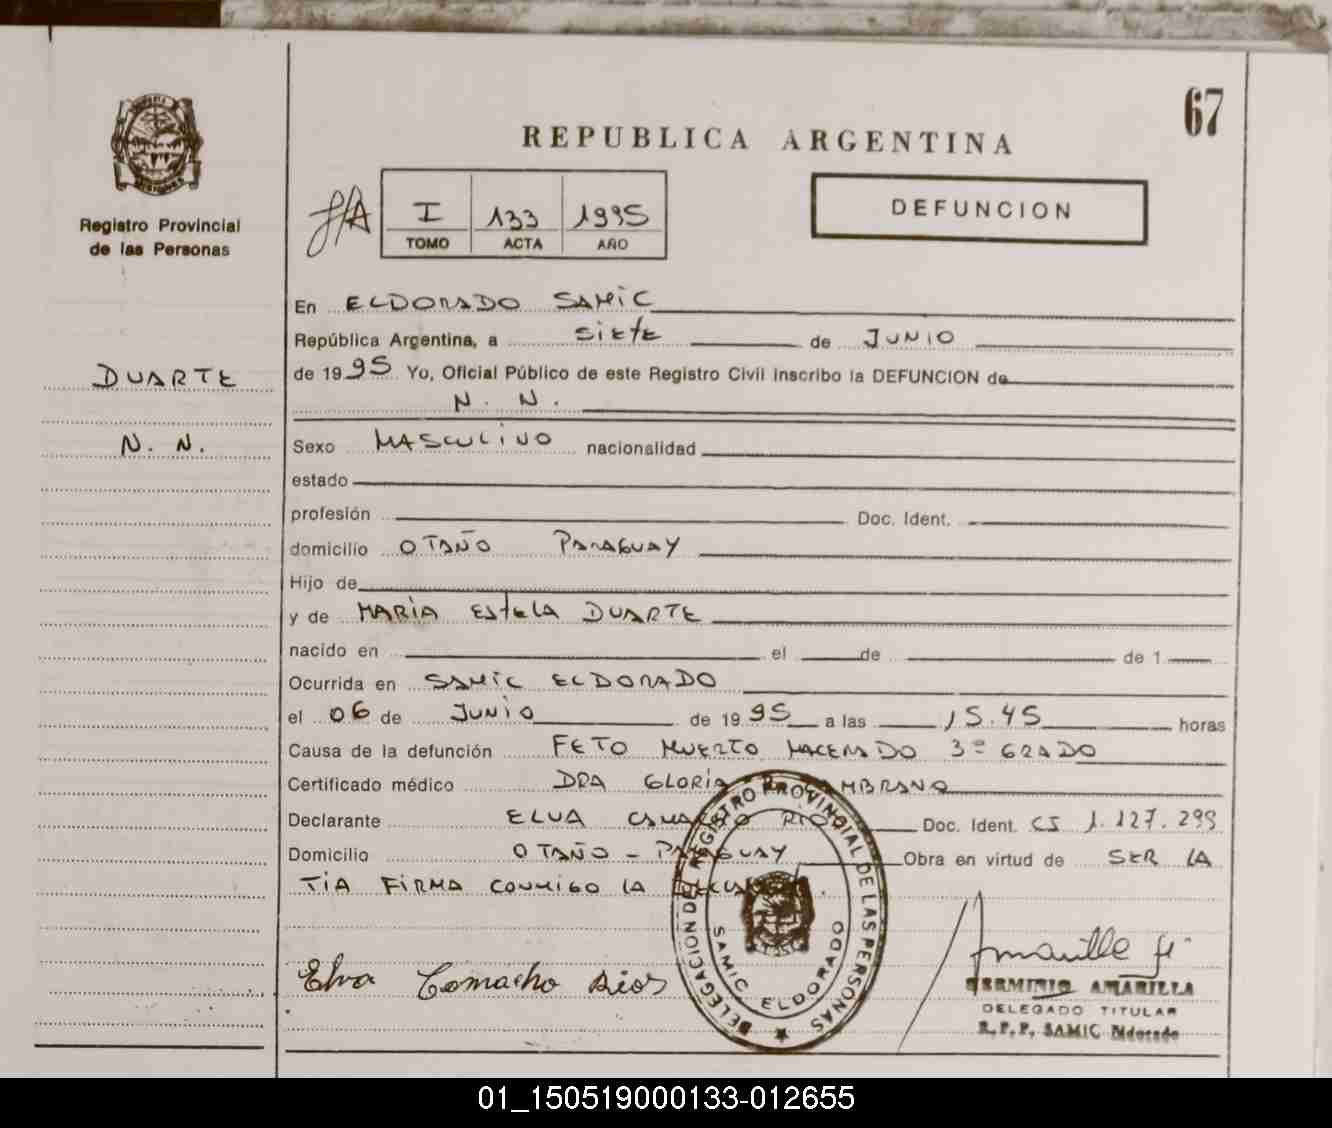 67
REPUBLICA ARGENTINA
Registro Provincial
de las Personas
I 133 1995
TOMO ACTA AÑO
DEFUNCION
DUARTE
N. N.
En ELDORADO SAMIC
República Argentina, a SIETE de JUNIO
de 1995 Yo, Oficial Público de este Registro Civil inscribo la DEFUNCION de
N. N.
Sexo MASCULINO nacionalidad
estado
profesión Doc. Ident.
domicilio OTAÑO PARAGUAY
Hijo de
y de MARIA ESTELA DUARTE
nacido en el de de 1
Ocurrida en SAMIC ELDORADO
el 06 de JUNIO de 1995 a las 15.45 horas
Causa de la defunción FETO MUERTO MACERADO 3º GRADO
Certificado médico DRA GLORIA
Declarante ELVA CAMACHO RIOS Doc. Ident. CI 1.127.299
Domicilio OTAÑO - PARAGUAY Obra en virtud de SER LA
TIA FIRMA CONMIGO LA
Elva Camacho Rios
DELEGACION DEL REGISTRO PROVINCIAL DE LAS PERSONAS
SAMIC ELDORADO
HERMINIO AMARILLA
DELEGADO TITULAR
R.P.P. SAMIC Eldorado
01_150519000133-012655